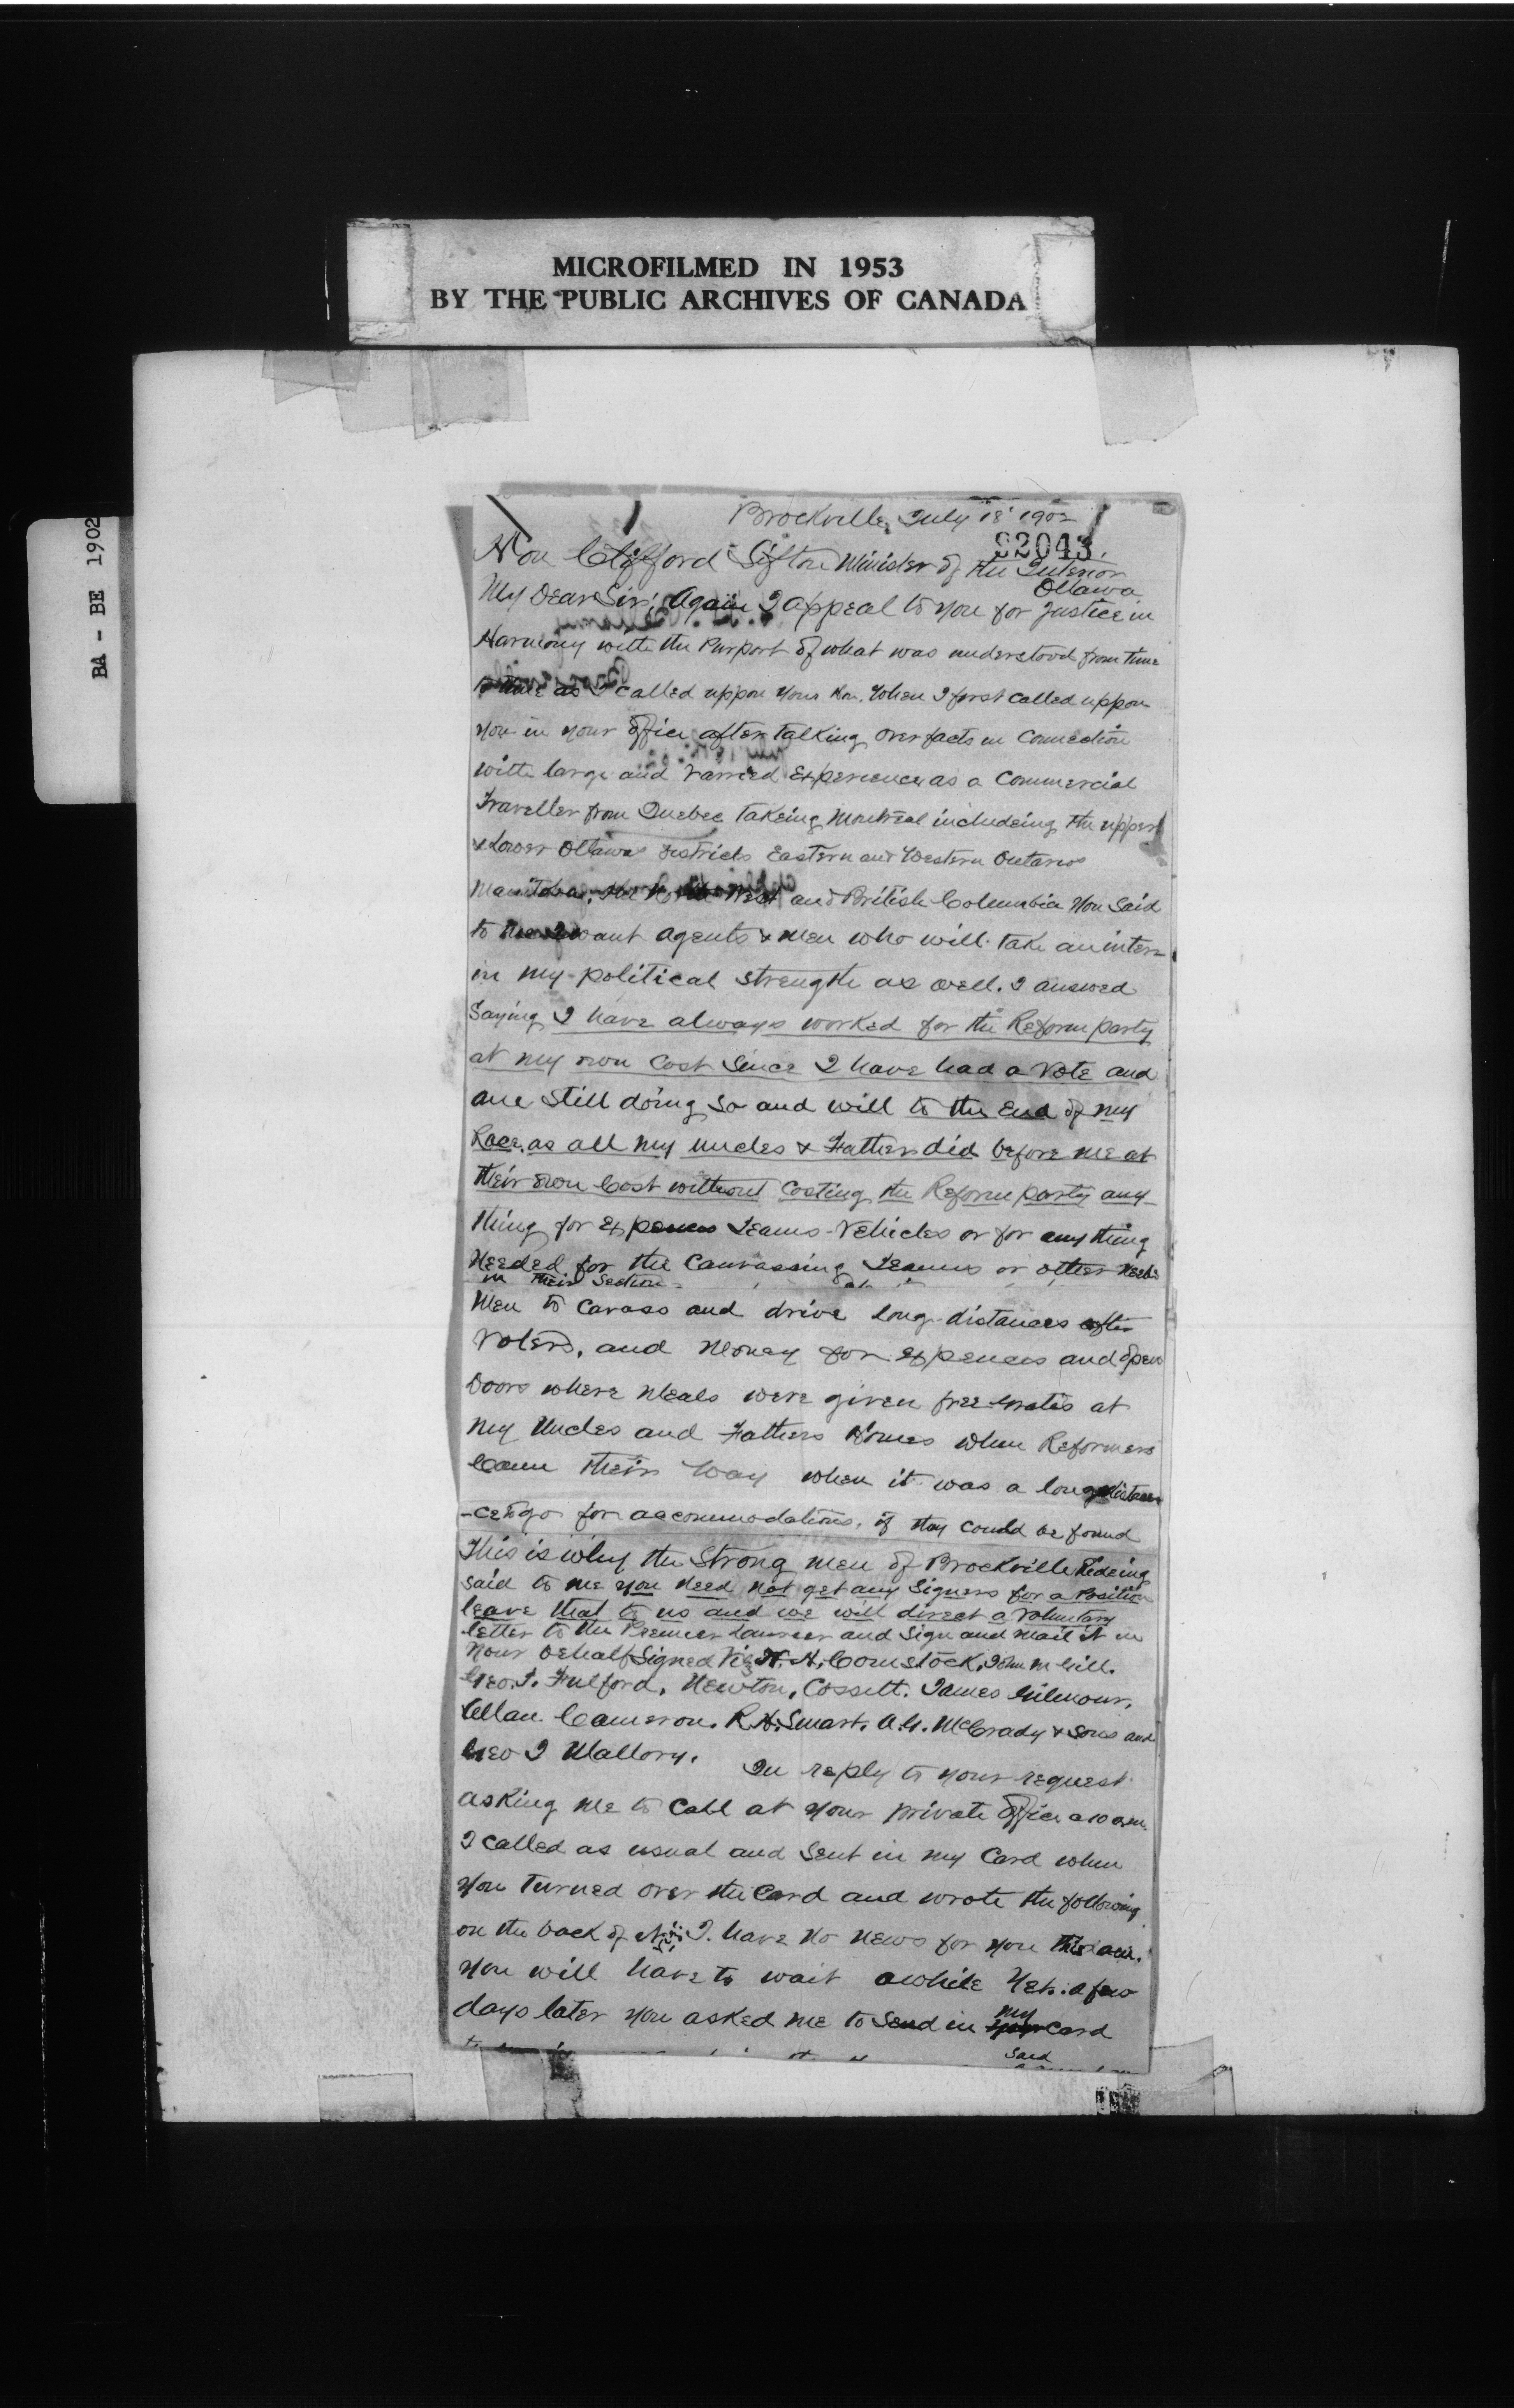 MICROFILMED IN 1953
BY THE PUBLIC ARCHIVES OF CANADA
BA - BE 1902
Brockville, July 18' 1902
92043.
Hon Clifford Sifton Minister of the Interior
Ottawa
My Dear Sir; Again I appeal to you for Justice in
Harmony with the Purport of what was understood from time
to time as I called uppon Your Hon. When I first called uppon
You in your Office after talking over facts in Connection
with large and varried Experience as a Commercial
Traveller from Quebec Takeing Montreal includeing the upper
& Lower Ottawa Districts Eastern and Western Ontario
Manitoba, the North West and British Columbia You Said
to me I want agents & Men who will take an inter-
in my political strength as well. I answed
Saying I have always worked for the Reform party
at my own Cost Since I have had a Vote and
am still doing so and will to the End of my
Race, as all my uncles & Father did before me at
their own Cost without Costing the Reform party any-
thing for Expences Teams-Vehicles or for any thing
Needed for the Canvassing Teams or other Needs
in their Section
Men to Cavass and drive long distances after
Voters, and Money for Expences and open
Doors where Meals were given free Gratis at
my Uncles and Fathers Homes when Reformers
Came Their Way when it was a long distan
-ce to go for accommodations, if they could be found
This is why the Strong men of Brockville Rideing
said to me you Need Not get any Signers for a Position
leave that to us and we will direct a Voluntary
letter to the Premier Laurier and Sign and Mail it in
Your behalf Signed Viz W. H. Comstock, John M Gill.
Geo. T. Fulford, Newton, Cossitt. James Gilmour,
Allan Cameron. R. H. Smart. A. G. McCrady & Sons and
Geo I Mallory. In reply to your request
asking me to Call at your private Office a 10 a.m.
I called as usual and Sent in my Card when
You Turned over the Card and wrote the following
on the back of it Sir: I have No News for you this a.m.
You will have to wait awhile Yet. a few
days later you asked me to Send in my Card
Said